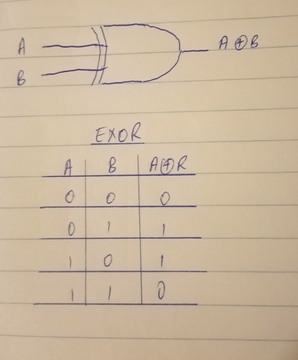 A A⊕B
B
EXOR
A B A⊕R
0 0 0
0 1 1
1 0 1
1 1 0